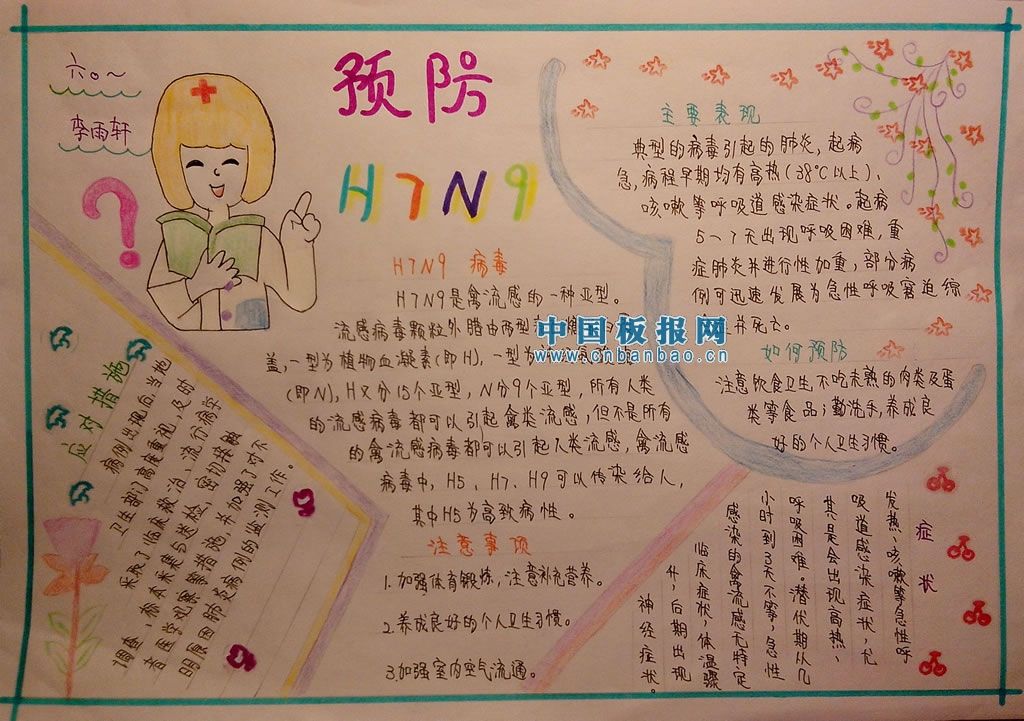 六〇~
李雨轩
预防
H7N9
H7N9 病毒
H7N9是禽流感的一种亚型。
流感病毒颗粒外膜由两型
盖,一型为植物血凝素(即H),一型为
(即N),H又分15个亚型,N分9个亚型,所有人类
的流感病毒都可以引起禽类流感,但不是所有
的禽流感病毒都可以引起人类流感,禽流感
病毒中,H5、H7、H9可以传染给人,
其中H5为高致病性。
注意事项
1.加强体育锻炼,注意补充营养。
2.养成良好的个人卫生习惯。
3.加强室内空气流通。
主要表现
典型的病毒引起的肺炎,起病
急,病程早期均有高热(38℃以上)、
咳嗽等呼吸道感染症状。起病
5—7天出现呼吸困难,重
症肺炎并进行性加重,部分病
例可迅速发展为急性呼吸窘迫综
并死亡。
如何预防
注意饮食卫生,不吃未熟的肉类及蛋
类等食品;勤洗手,养成良
好的个人卫生习惯。
应对措施
病例出现后,当地
卫生部门高度重视,及时
采展了临床救治、流行病学
调查、标本采集与送检、密切接触
者医学观察措施,并加强了对不
明原因肺炎病例的监测工作。
症状
发热、咳嗽等急性呼
吸道感染症状,尤
其是会出现高热、
呼吸困难。潜伏期从几
小时到3天不等,急性
感染的禽流感无特定
临床症状,体温骤
升,后期出现
神经症状。
中国板报网
www.cnbanbao.cn